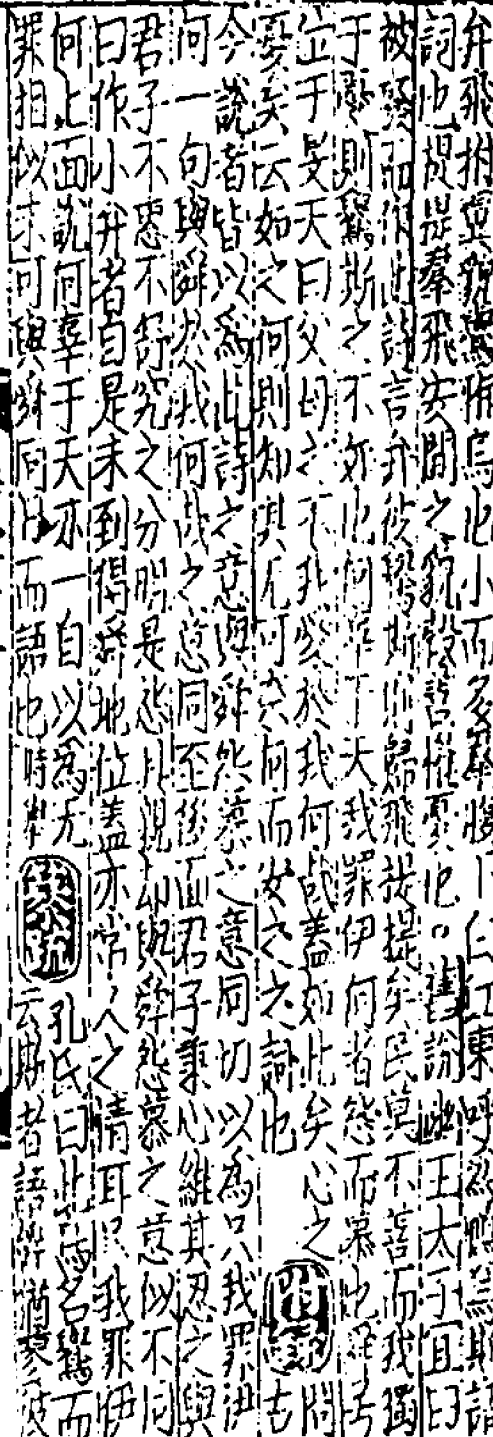 弁飛拊翼貌鸒雅烏也小而多羣腹下白江東呼爲鵯烏斯語
詞也提提羣飛安閒之貌穀善罹憂也○舊說幽王太子宜臼
被廢而作此詩言弁彼鸒斯則歸飛提提矣民莫不善而我獨
于罹則鸒斯之不如也何辜于天我罪伊何者怨而慕也舜号
泣于旻天曰父母之不我愛於我何哉蓋如此矣心之
憂矣云如之何則知其无可奈何而安之之詞也 附録 問古
今說者皆以爲此詩之意與舜怨慕之意同切以為只我罪伊
何一句與舜於我何哉之意同至後面君子秉心維其忍之與
君子不惠不舒究之分明是怨其親却與舜怨慕之意似不同
曰作小弁者自是未到得舜地位盖亦常人之情耳只我罪伊
何上面說何辜于天亦一自以為无
罪相似未可與舜同日而語也時舉 纂疏 孔氏曰此鳥名鸒而
云斯者語辭猶蓼彼